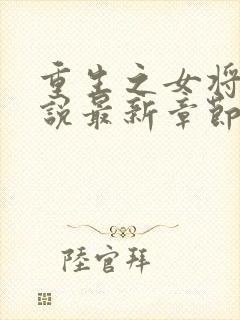 重生之女将
說最新章節
陸官拜